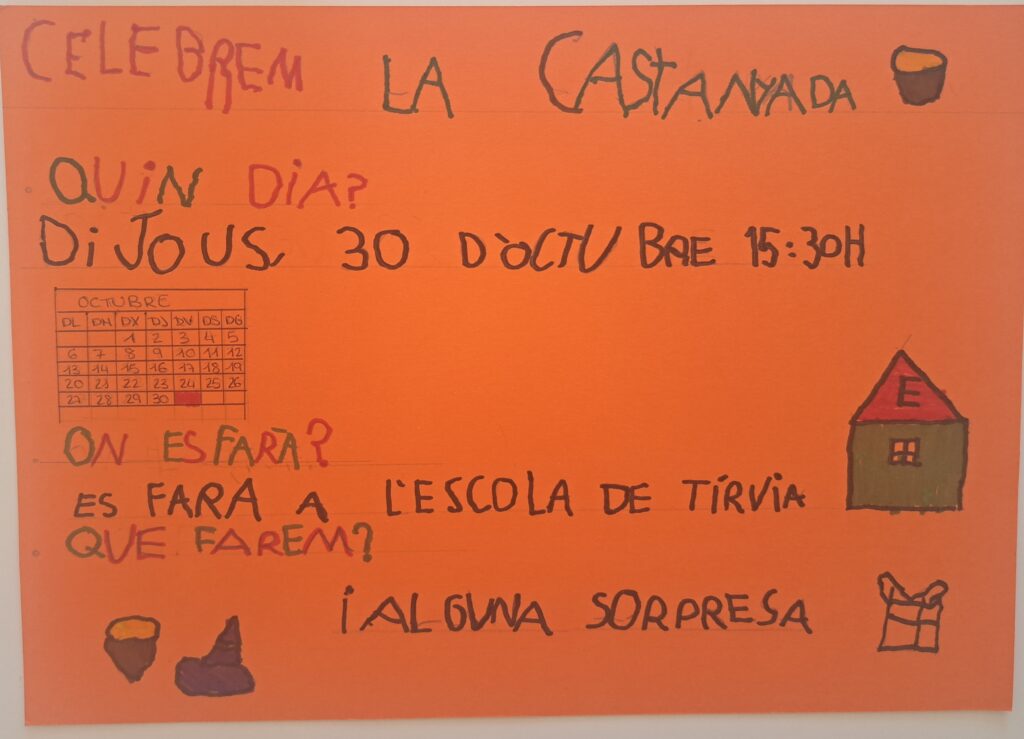 CELEBREM LA CASTANYADA
QUIN DIA?
DIJOUS, 30 D'ÒCTUBRE 15:30H
OCTUBRE
DL DM DX DJ DV DS DG
1 2 3 4 5
6 7 8 9 10 11 12
13 14 15 16 17 18 19
20 21 22 23 24 25 26
27 28 29 30
E
ON ES FARÀ?
ES FARÀ A L'ESCOLA DE TÍRVIA
QUE FAREM?
¡ALGUNA SORPRESA